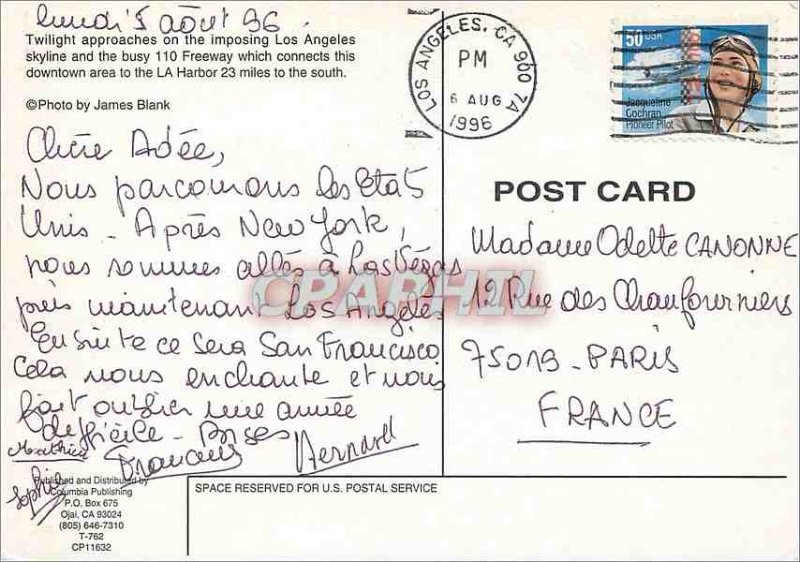 lundi 5 août 96.
Twilight approaches on the imposing Los Angeles
skyline and the busy 110 Freeway which connects this
downtown area to the LA Harbor 23 miles to the south.
©Photo by James Blank
Chère Adée,
Nous parcourons les Etats
Unis - Après New York,
nous sommes allés à Las Végas
puis maintenant Los Angelès
Ensuite ce sera San Francisco
Cela nous enchante et nous
fait oublier une année
difficile - Bises
Mathieu
Bernard
Sophie
Published and Distributed by
Columbia Publishing
P.O. Box 675
Ojai, CA 93024
(805) 646-7310
T-762
CP11632
LOS ANGELES, CA 900 7A
PM
6 AUG
1996
50 USA
Jacqueline
Cochran
Pioneer Pilot
POST CARD
Madame Odette CANONNE
12 Rue des Chaufourniers
75019 - PARIS
FRANCE
SPACE RESERVED FOR U.S. POSTAL SERVICE
CPARHIL